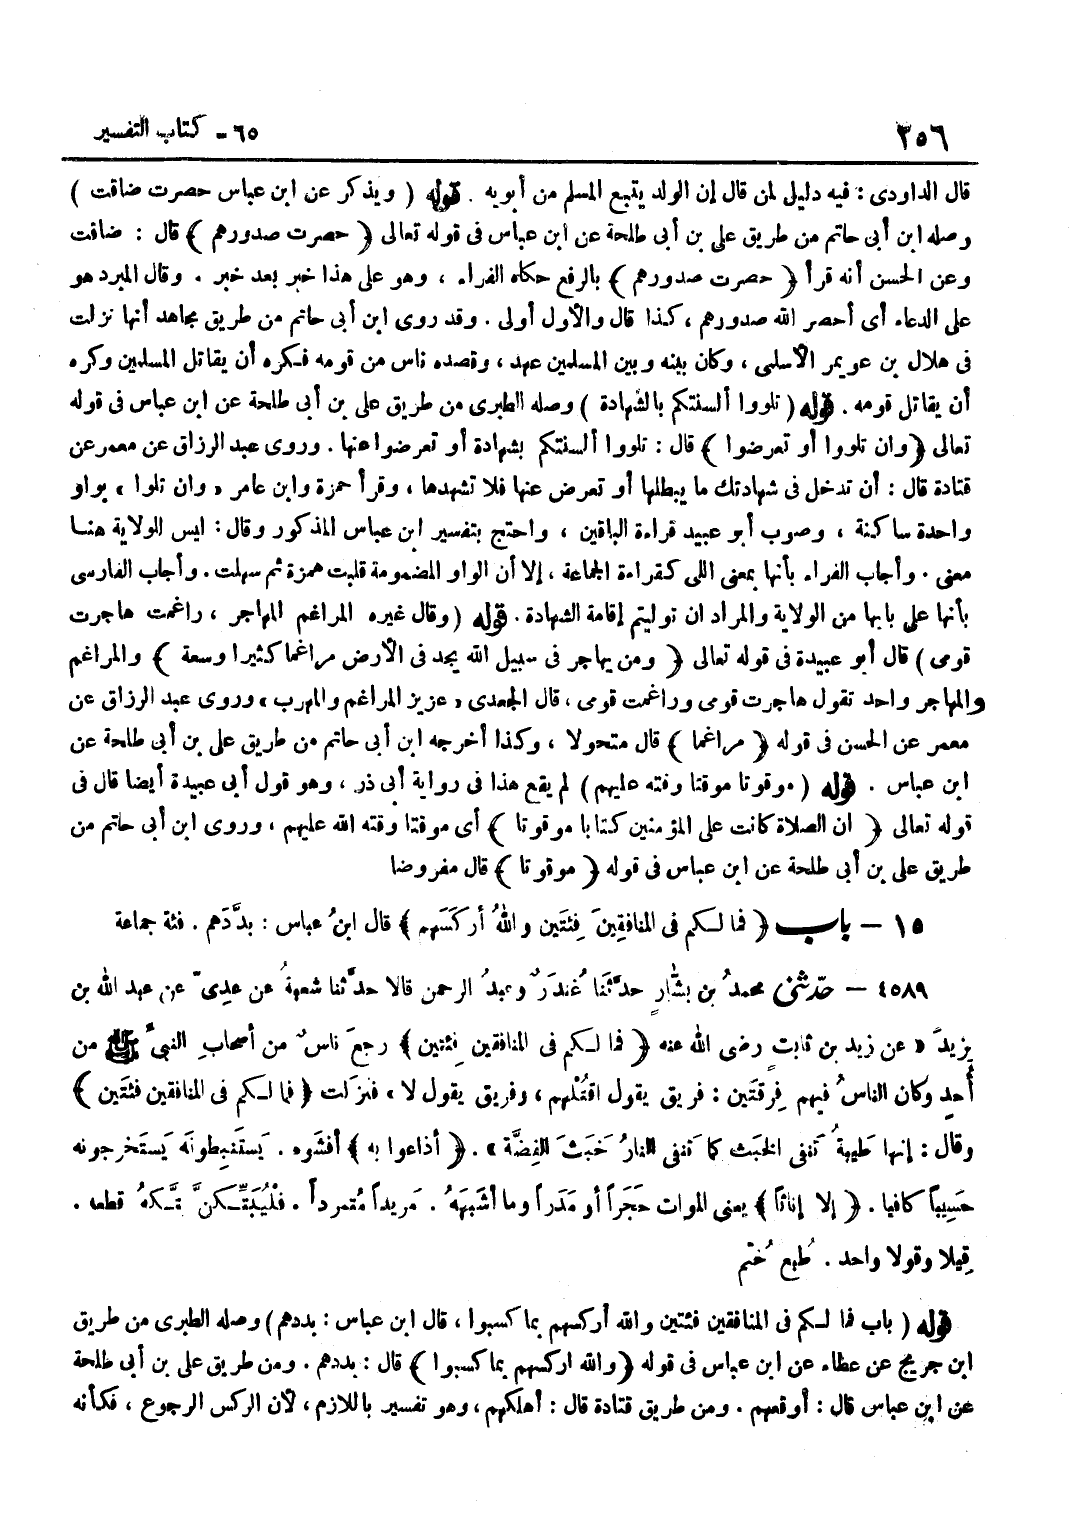 ٢٥٦
٦٥ - كتاب التفسير
قال الداودى : فيه دليل لمن قال إن الولد يتبع المسلم من أبويه . قوله ( ويذكر عن ابن عباس حصرت ضاقت )
وصله ابن أبى حاتم من طريق على بن أبى طلحة عن ابن عباس فى قوله تعالى ﴿ حصرت صدورهم ﴾ قال : ضاقت
وعن الحسن أنه قرأ ﴿ حصرت صدورهم ﴾ بالرفع حكاه الفراء ، وهو على هذا خبر بعد خبر . وقال المبرد هو
على الدعاء أى أحصر الله صدورهم ، كذا قال والأول أولى . وقد روى ابن أبى حاتم من طريق مجاهد أنها نزلت
فى هلال بن عويمر الأسلمى ، وكان بينه وبين المسلمين عهد ، وقصده ناس من قومه فكره أن يقاتل المسلمين وكره
أن يقاتل قومه . قوله ( تلووا ألسنتكم بالشهادة ) وصله الطبرى من طريق على بن أبى طلحة عن ابن عباس فى قوله
تعالى ﴿ وان تلووا أو تعرضوا ﴾ قال : تلووا ألسنتكم بشهادة أو تعرضوا عنها . وروى عبد الرزاق عن معمر عن
قتادة قال : أن تدخل فى شهادتك ما يبطلها أو تعرض عنها فلا تشهدها ، وقرأ حمزة وابن عامر « وان تلوا » بواو
واحدة ساكنة ، وصوب أبو عبيد قراءة الباقين ، واحتج بتفسير ابن عباس المذكور وقال : ليس الولاية هنا
معنى . وأجاب الفراء بأنها بمعنى اللى كقراءة الجماعة ، إلا أن الواو المضمومة قلبت همزة ثم سهلت . وأجاب الفارسى
بأنها على بابها من الولاية والمراد ان توليتم إقامة الشهادة . قوله ( وقال غيره المراغم المهاجر ، راغمت هاجرت
قومى ) قال أبو عبيدة فى قوله تعالى ﴿ ومن يهاجر فى سبيل الله يجد فى الأرض مراغما كثيرا وسعة ﴾ والمراغم
والمهاجر واحد تقول هاجرت قومى وراغمت قومى ، قال الجعدى « عزيز المراغم والمهرب » وروى عبد الرزاق عن
معمر عن الحسن فى قوله ﴿ مراغما ﴾ قال متحولا ، وكذا أخرجه ابن أبى حاتم من طريق على بن أبى طلحة عن
ابن عباس . قوله ( موقوتا موقتا وقته عليهم ) لم يقع هذا فى رواية أبى ذر ، وهو قول أبى عبيدة أيضا قال فى
قوله تعالى ﴿ ان الصلاة كانت على المؤمنين كتابا موقوتا ﴾ أى موقتا وقته الله عليهم ، وروى ابن أبى حاتم من
طريق على بن أبى طلحة عن ابن عباس فى قوله ﴿ موقوتا ﴾ قال مفروضا
١٥ - باب ﴿ فما لكم فى المنافقِينَ فِئتَين واللهُ أركَسَهم ﴾ قال ابنُ عباس : بدَّدَهم . فئة جماعة
٤٥٨٩ - حدّثنى محمدُ بن بشّارٍ حدَّثنا غُندَرٌ وعبدُ الرحمن قالا حدَّثنا شعبةُ عن عدِىّ عن عبد الله بن
يزيدَ « عن زيد بن ثابت رضى الله عنه ﴿ فما لكم فى المنافقين فِئتين ﴾ رجعَ ناسٌ من أصحابِ النبىِّ ﷺ من
أُحدٍ وكان الناسُ فيهم فِرقتَين : فريق يقول اقتُلْهم ، وفريق يقول لا ، فنزلت ﴿ فما لكم فى المنافقين فئتَين ﴾
وقال : إنها طَيبةُ تَنفى الخبَث كما تنفى النارُ خَبَثَ الفِضَّة » . ﴿ أذاعوا به ﴾ أفشَوه . يَستَنبِطونَه يَستَخرجونه
حَسِيباً كافيا . ﴿ إلا إناثاً ﴾ يعنى الموات حَجَراً أو مَدَراً وما أشبَهَهُ . مَريداً مُتمرداً . فَلْيُبَتِّكنَّ بَتَّكهُ قطعه .
قِيلا وقولا واحد . طُبع خُتم
قوله ( باب فما لكم فى المنافقين فئتين والله أركسهم بما كسبوا ، قال ابن عباس : بددهم ) وصله الطبرى من طريق
ابن جريج عن عطاء عن ابن عباس فى قوله ﴿ والله اركسهم بما كسبوا ﴾ قال : بددهم . ومن طريق على بن أبى طلحة
عن ابن عباس قال : أوقعهم . ومن طريق قتادة قال : أهلكهم ، وهو تفسير باللازم ، لأن الركس الرجوع ، فكأنه